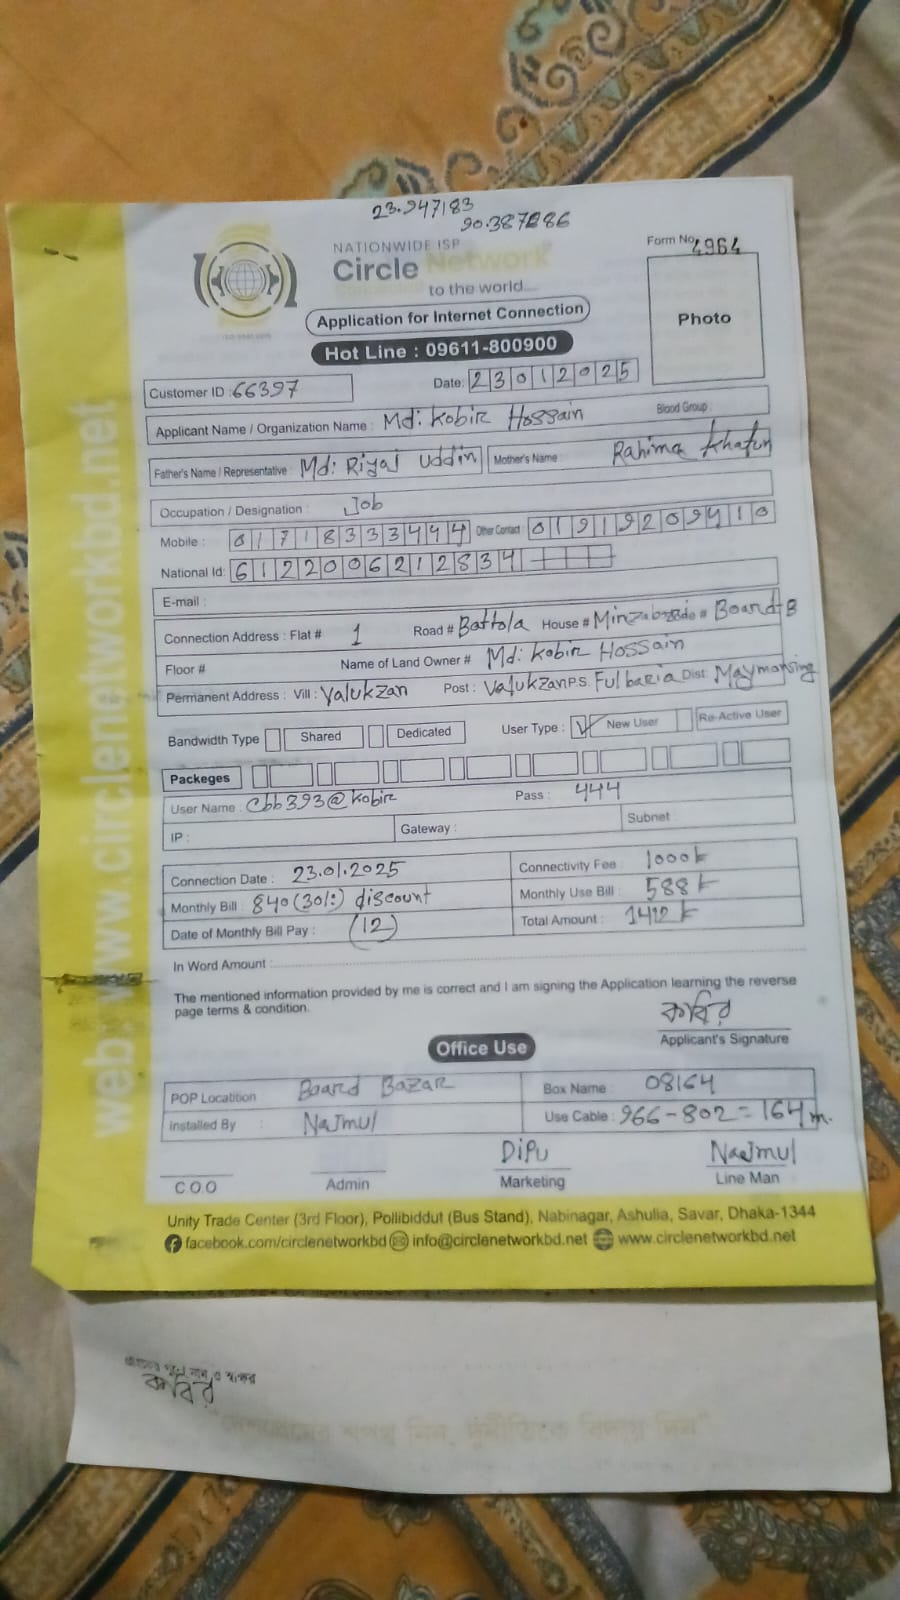 23.947183
90.387286
NATIONWIDE ISP
Circle Network
to the world....
Form No 4964
Application for Internet Connection
Photo
Hot Line : 09611-800900
Customer ID : 66397 Date: 23012025
Applicant Name / Organization Name : Md: Kobir Hossain Blood Group :
Father's Name / Representative : Md: Riyaj Uddin Mother's Name Rahima Khatun
Occupation / Designation : Job
Mobile : 01718333444 Other Contact : 01919209410
National Id: 6122006212834
E-mail :
Connection Address : Flat # 1 Road # Battola House # Board-B
Floor # Name of Land Owner # Md: Kobir Hossain
Permanent Address : Vill : Valukzan Post : Valukzan P.S. Fulbaria Dist: Maymonsing
Bandwidth Type Shared Dedicated User Type : New User Re-Active User
Packeges
User Name : Cbb393@kobir Pass : 444
IP : Gateway : Subnet :
Connection Date : 23.01.2025 Connectivity Fee : 1000
Monthly Bill : 840 (30%) discount Monthly Use Bill : 588
Date of Monthly Bill Pay : (12) Total Amount : 1412
In Word Amount :
The mentioned information provided by me is correct and I am signing the Application learning the reverse
page terms & condition.
কবির
Applicant's Signature
Office Use
POP Locatition Board Bazar Box Name : 08164
Installed By : Najmul Use Cable : 966-802=164m.
Dipu Najmul
C.O.O Admin Marketing Line Man
Unity Trade Center (3rd Floor), Pollibiddut (Bus Stand), Nabinagar, Ashulia, Savar, Dhaka-1344
facebook.com/circlenetworkbd info@circlenetworkbd.net www.circlenetworkbd.net
web: www.circlenetworkbd.net
কবির